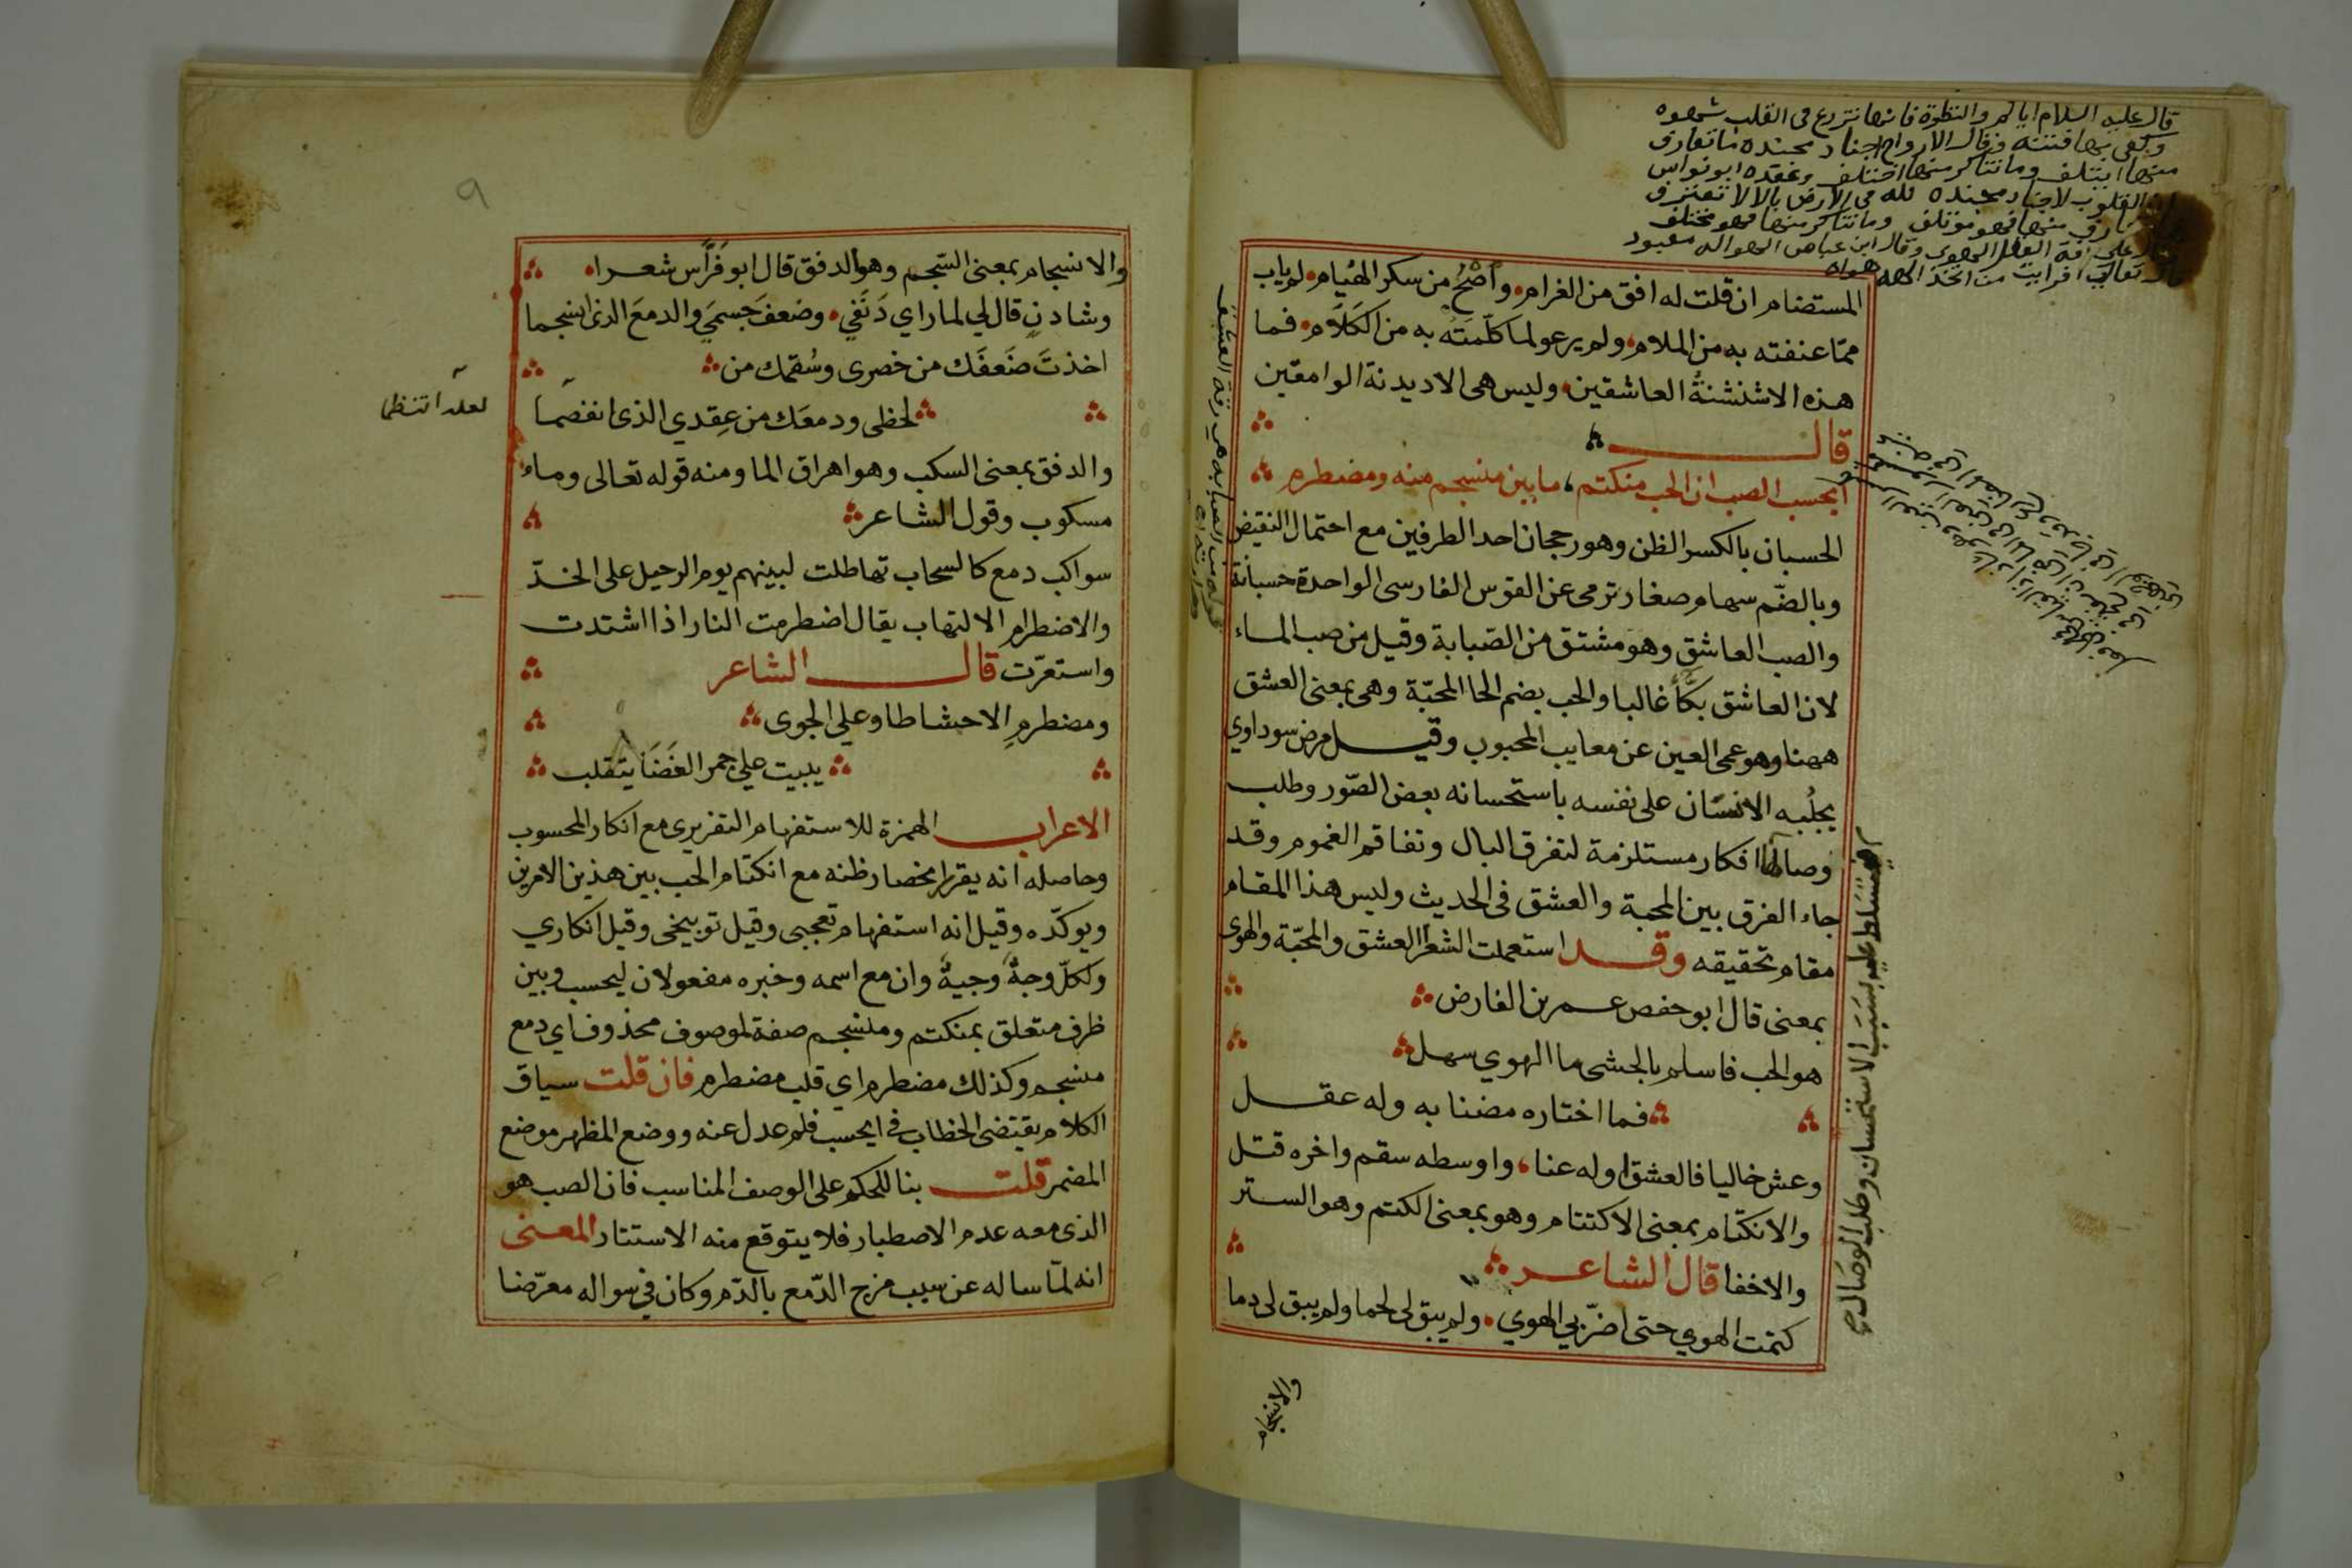 قال عليه السلام اياكم والنظرة فانها تزرع فى القلب شهوه
وكفى بها فتنة وقال الارواح اجناد مجنده ما تعارف
منها ايتلف وما تناكر منها اختلف وعقده ابو نواس
القلوب لاجناد مجنده لله فى الارض بالا لا تعترف
تعارف منها فهو مؤتلف وما تناكر منها فهو مختلف
على افة العقل الهوى وقال ابن عباس الهوا اله معبود
قال تعالى افرايت من اتخذ الهه هواه
المستضام ان قلت له افق من الغرام، واصح من سكر الهيام، لم ياب
مما عنفته به من الملام، ولم يرعو لما كلمته به من الكلام، فما
هذه الا شنشنة العاشقين، وليس هى الا ديدنة الوامقين
قال
ايحسب الصب ان الحب منكتم، ما بين منسجم منه ومضطرم
الحسبان بالكسر الظن وهو رجحان احد الطرفين مع احتمال النقيض
وبالضم سهام صغار ترمى عن القوس الفارسى الواحدة حسبانة
والصب العاشق وهو مشتق من الصبابة وقيل من صب الماء
لان العاشق بكّاً غالبا والحب بضم الحا المحبة وهى بمعنى العشق
ههنا وهو عمى العين عن معايب المحبوب وقيل مرض سوداوي
يجلبه الانسان على نفسه باستحسانه بعض الصور وطلب
وصالها افكار مستلزمة لتفرق البال وتفاقم الغموم وقد
جاء الفرق بين المحبة والعشق فى الحديث وليس هذا المقام
مقام تحقيقه وقد استعملت الشعرا العشق والمحبة والهوى
بمعنى قال ابو حفص عمر بن الفارض
هو الحب فاسلم بالحشى ما الهوي سهل
فما اختاره مضنا به وله عقل
وعش خاليا فالعشق اوله عنا، واوسطه سقم واخره قتل
والانكتام بمعنى الاكتتام وهو بمعنى الكتم وهو الستر
والاخفا قال الشاعر
كتمت الهوي حتى اضر بي الهوي، ولم يبق لى لحما ولم يبق لى دما
تسلط عليه بسبب الاستحسان وطلب الوصال
والانسجام
٩
والانسجام بمعنى السجم وهو الدفق قال ابو فراس شعرا
وشادن قال لي لما راي دنفي، وضعف جسمي والدمع الذى انسجما
اخذت ضعفك من خصرى وسقمك من
لحظى ودمعك من عقدي الذى انفصما
لعله انتظما
والدفق بمعنى السكب وهو اهراق الما ومنه قوله تعالى وماء
مسكوب وقول الشاعر
سواكب دمع كالسحاب تهاطلت لبينهم يوم الرحيل على الخد
والاضطرام الالتهاب يقال اضطرمت النار اذا اشتدت
واستعرت قال الشاعر
ومضطرم الاحشا طاو علي الجوى
يبيت علي جمر الغضا يتقلب
الاعراب الهمزة للاستفهام التقريرى مع انكار المحسوب
وحاصله انه يقرر انحصار ظنه مع انكتام الحب بين هذين الامرين
ويوكده وقيل انه استفهام تعجبى وقيل توبيخى وقيل انكاري
ولكل وجة وجية وان مع اسمه وخبره مفعولان ليحسب وبين
ظرف متعلق بمنكتم ومنسجم صفة لموصوف محذوف اي دمع
منسجم وكذلك مضطرم اي قلب مضطرم فان قلت سياق
الكلام يقتضى الخطاب فى ايحسب فلم عدل عنه ووضع المظهر موضع
المضمر قلت بنا للحكم على الوصف المناسب فان الصب هو
الذى معه عدم الاصطبار فلا يتوقع منه الاستتار المعنى
انه لما ساله عن سبب مزج الدمع بالدم وكان فى سواله معرضا